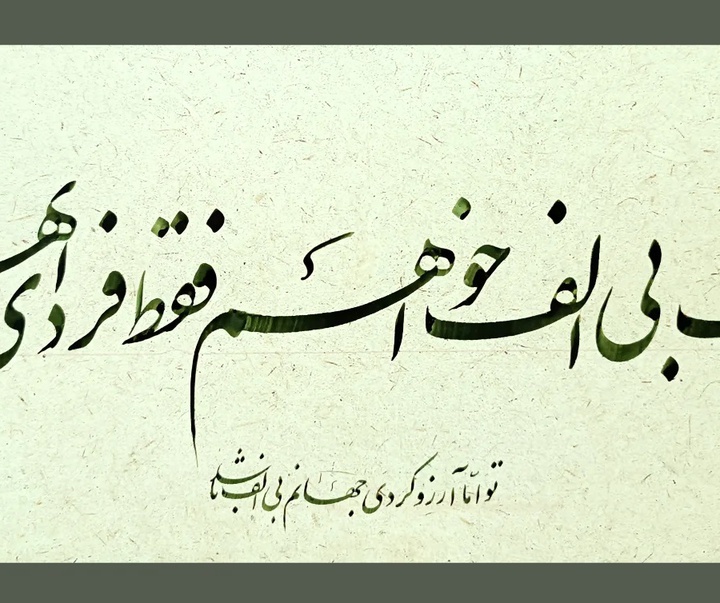 بی الف خواهم فقط فردی
تو امّا آرزو کردی جهانم بی الف باشد